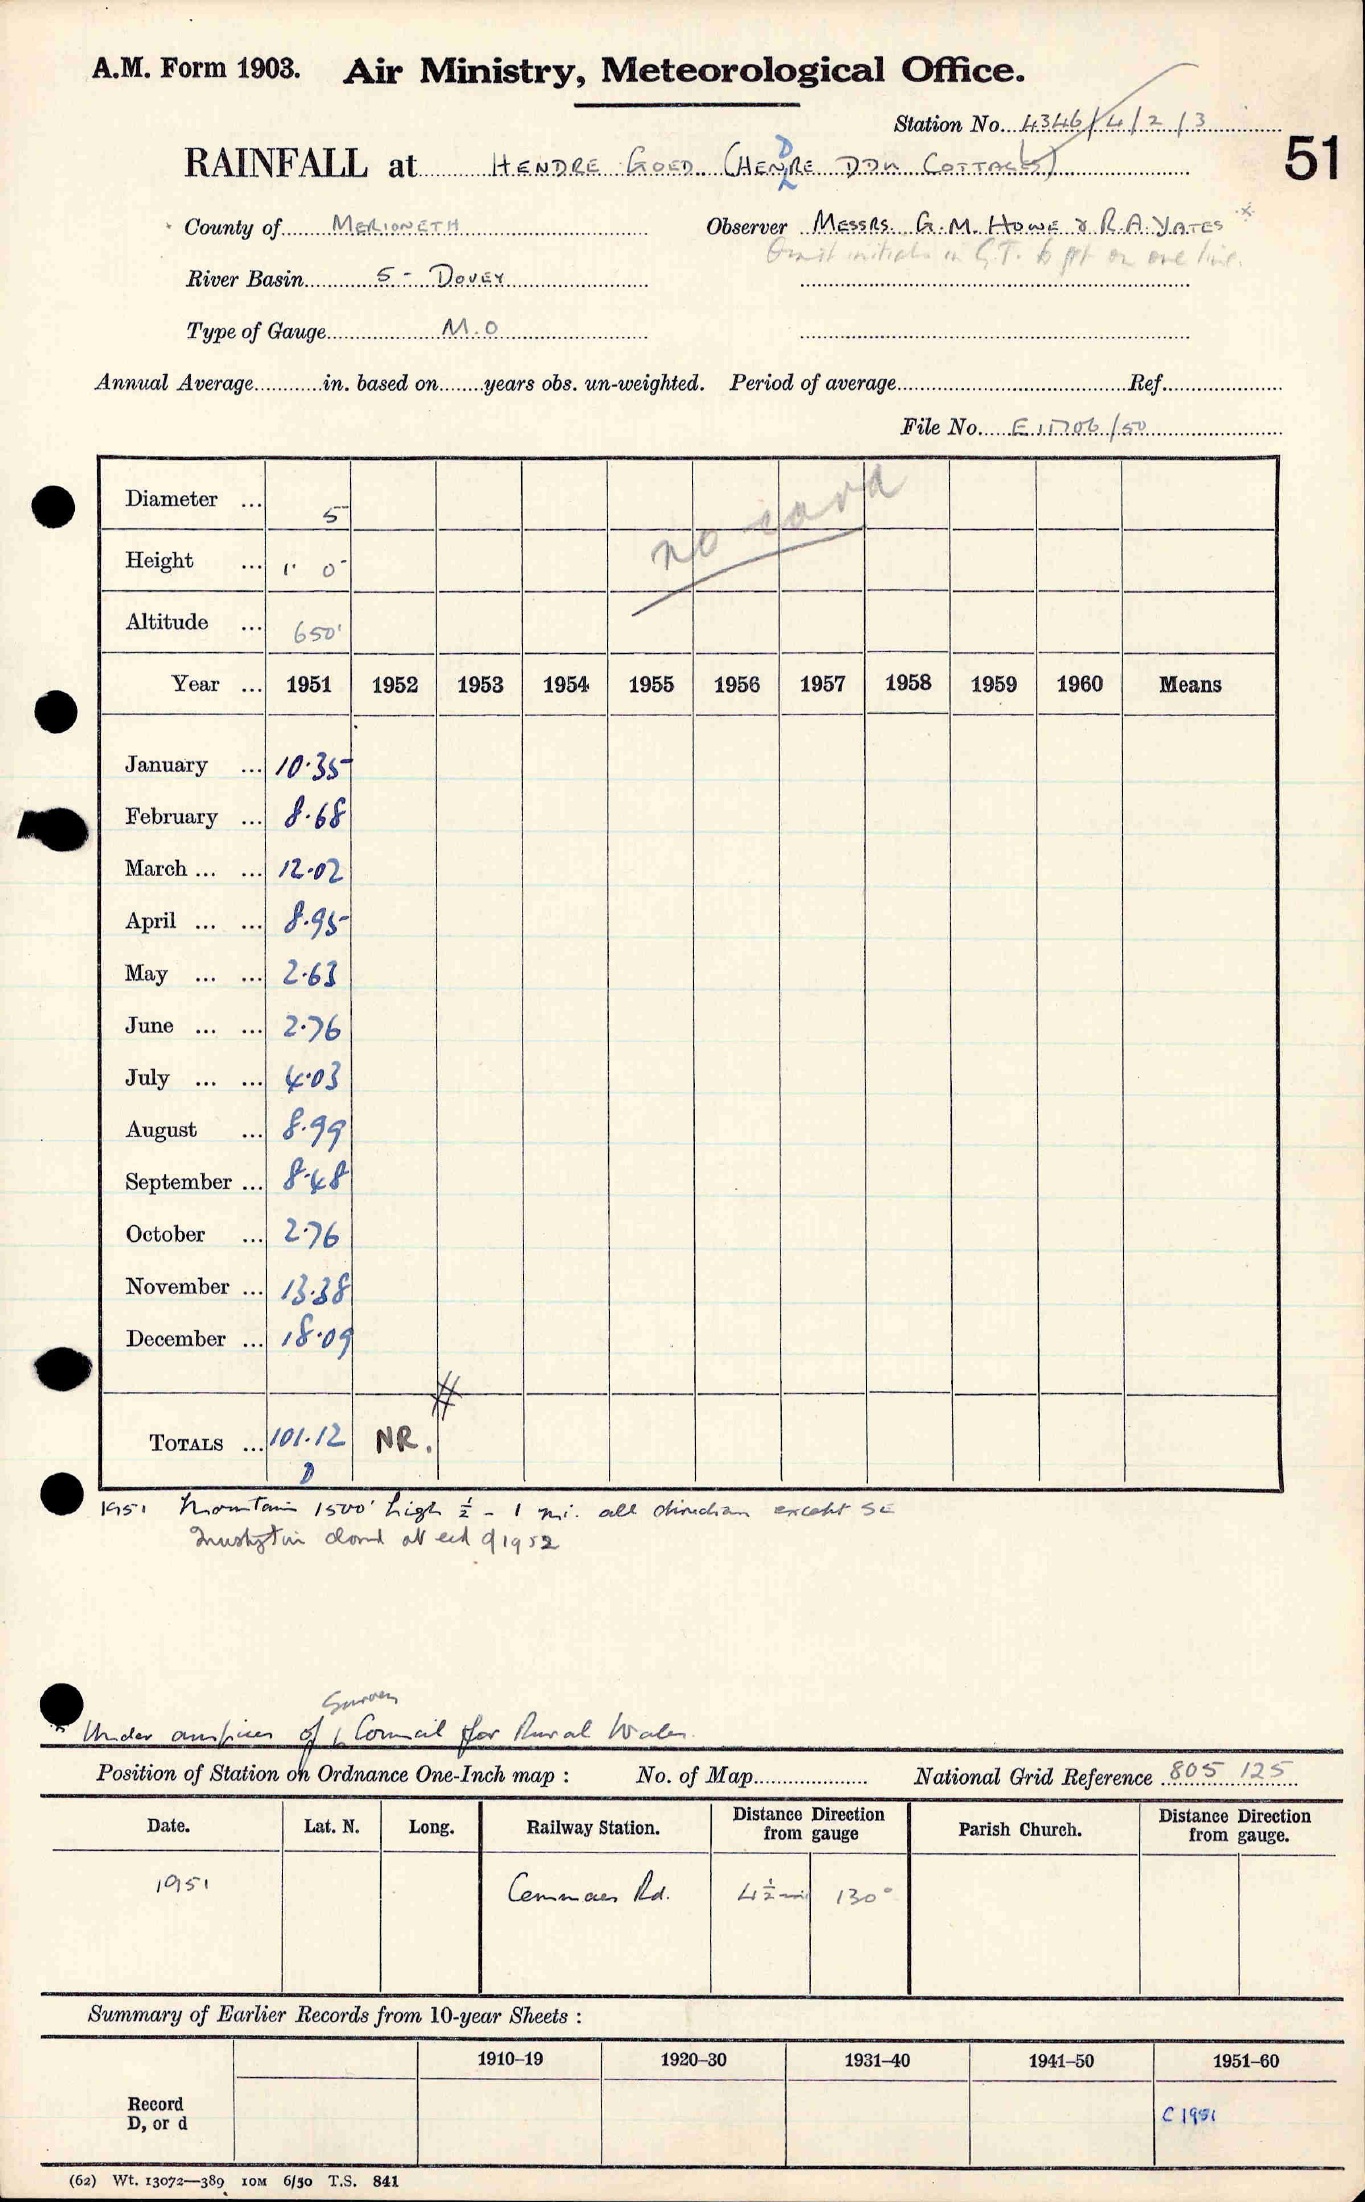 A.M. Form 1903. Air Ministry, Meteorological Office.
Station No. 4346/4/2/3
51
RAINFALL at HENDRE GOED (HENDRE DDU COTTAGES)
County of MERIONETH Observer MESSRS. G. M. HOWE & R. A. YATES *
Omit initials in G.T. to get on one line.
River Basin 5 - DOVEY
Type of Gauge M.O
Annual Average in. based on years obs. un-weighted. Period of average Ref.
File No. E 11706/50
no card
Diameter ... 5
Height ... 1' 0"
Altitude ... 650'
Year ... 1951 1952 1953 1954 1955 1956 1957 1958 1959 1960 Means
January ... 10.35
February ... 8.68
March ... ... 12.02
April ... ... 8.95
May ... ... 2.63
June ... ... 2.76
July ... ... 4.03
August ... 8.99
September ... 8.48
October ... 2.76
November ... 13.38
December ... 18.09
TOTALS ... 101.12 NR.
D
1951 Mountain 1500' high ½ - 1 mi. all direction except SE
closed at end of 1952
Survey
* Under auspices of Council for Rural Wales.
Position of Station on Ordnance One-Inch map : No. of Map National Grid Reference 805 125
Date. Lat. N. Long. Railway Station. Distance Direction from gauge Parish Church. Distance Direction from gauge.
1951 Cemmaes Rd. 4½ mi 130°
Summary of Earlier Records from 10-year Sheets :
1910–19 1920–30 1931–40 1941–50 1951–60
Record
D, or d
C 1951
(62) Wt. 13072—389 10M 6/50 T.S. 841